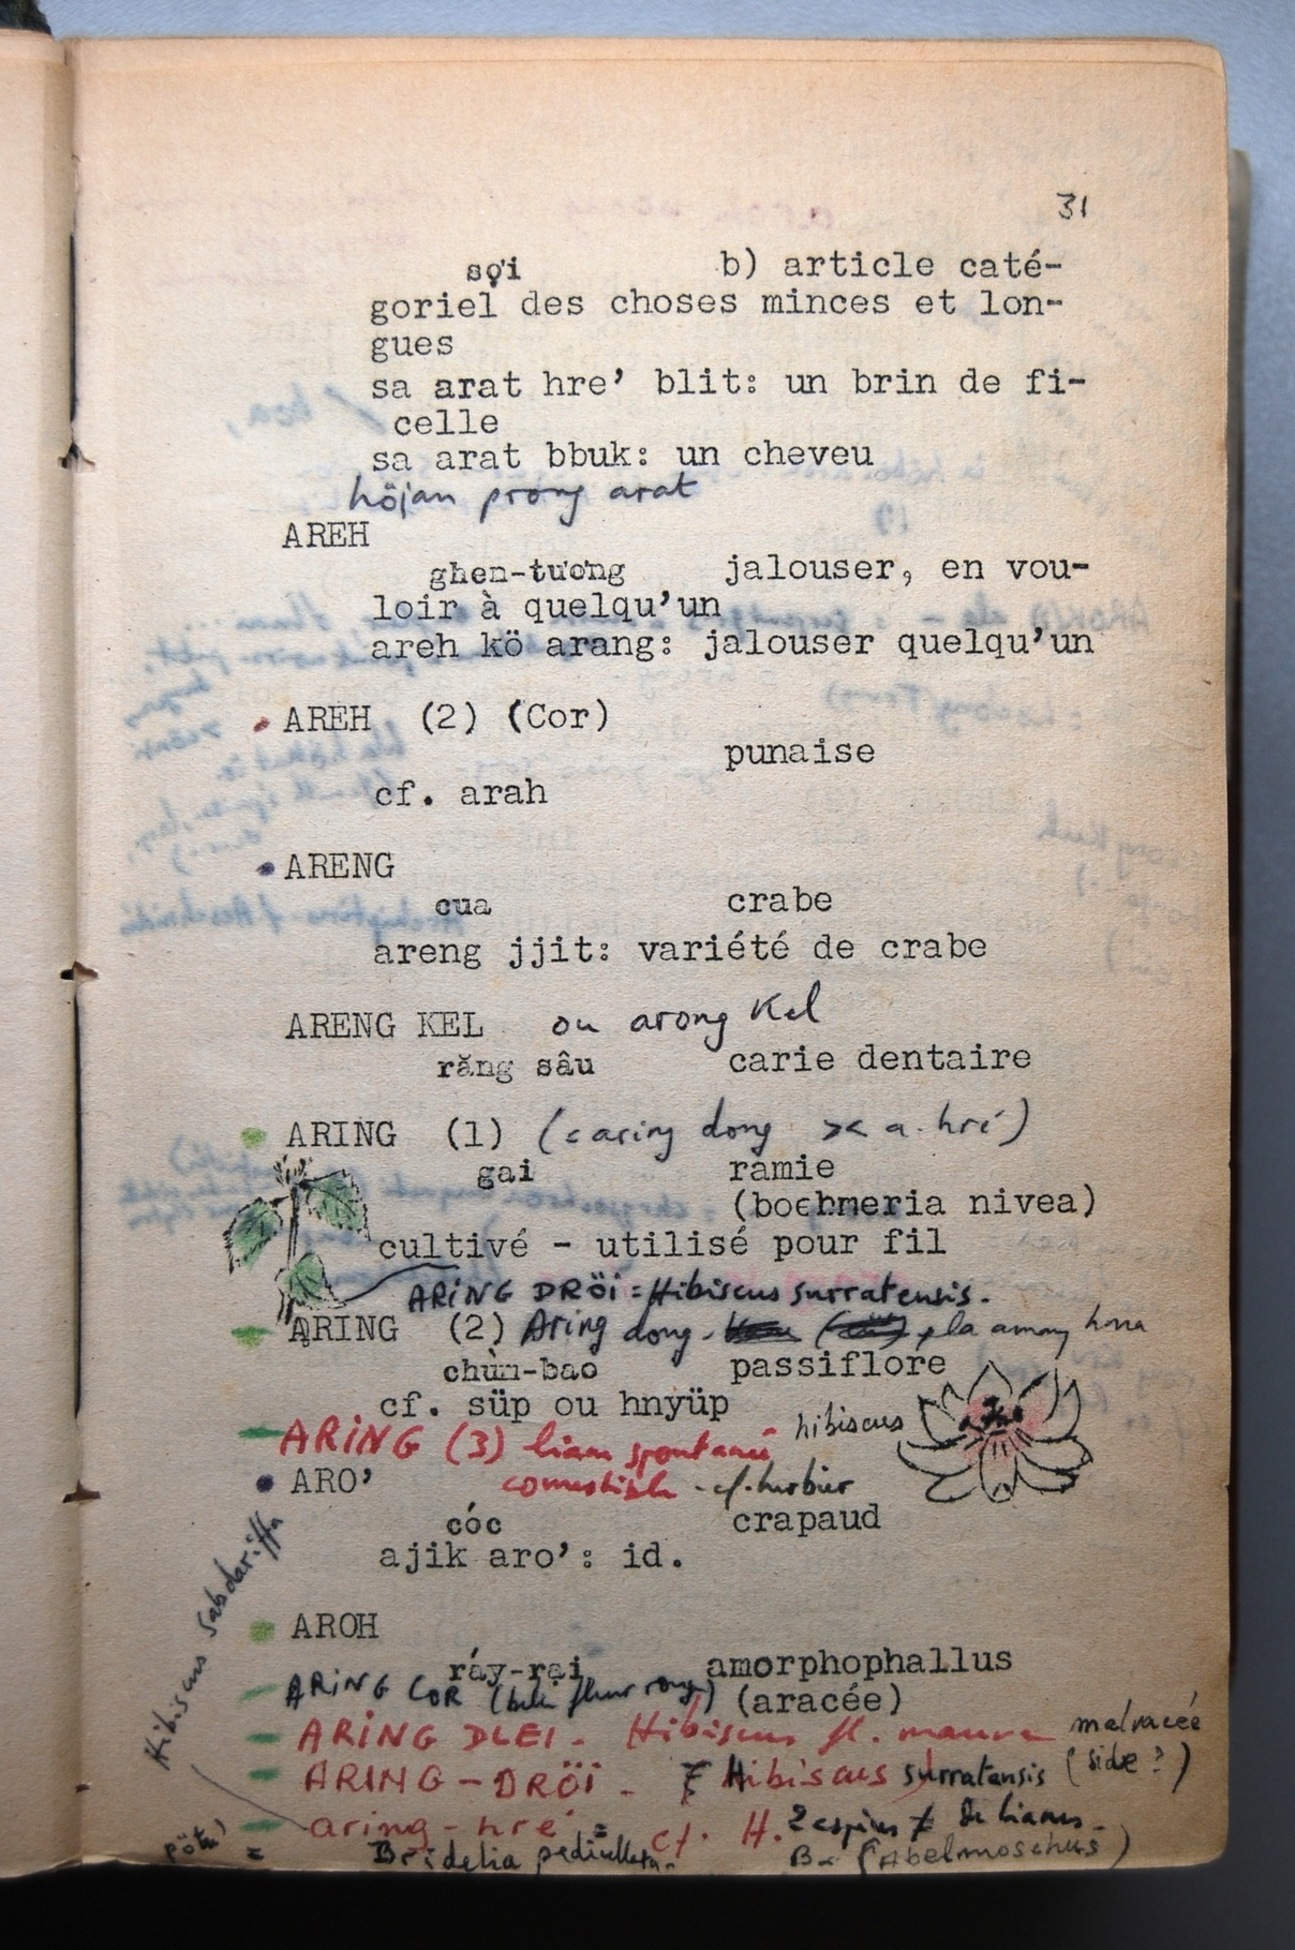 31
sợi b) article caté-
goriel des choses minces et lon-
gues
sa arat hre' blit: un brin de fi-
celle
sa arat bbuk: un cheveu
höjan prong arat
AREH
ghen-tương jalouser, en vou-
loir à quelqu'un
areh kö arang: jalouser quelqu'un
AREH (2) (Cor)
punaise
cf. arah
ARENG
cua crabe
areng jjit: variété de crabe
ARENG KEL ou arong Kel
răng sâu carie dentaire
ARING (1) (= aring dong >< a. hré)
gai ramie
(boehmeria nivea)
cultivé - utilisé pour fil
ARING DRÖI = Hibiscus surratensis.
ARING (2) Aring dong
chùm-bao passiflore
cf. süp ou hnyüp
hibiscus
ARING (3) liane spontanée
ARO' comestible - cf. herbier
cóc crapaud
ajik aro': id.
Hibiscus sabdariffa
AROH
ráy-rại amorphophallus
ARING COR (belle fleur rouge) (aracée)
ARING DLEI - Hibiscus fl. mauve malvacée
ARING-DRÖI - Hibiscus surratensis (side ?)
aring-hré = cf. H. 2 espèces ≠ de lianes.
Bridelia pedicellata. (Abelmoschus)